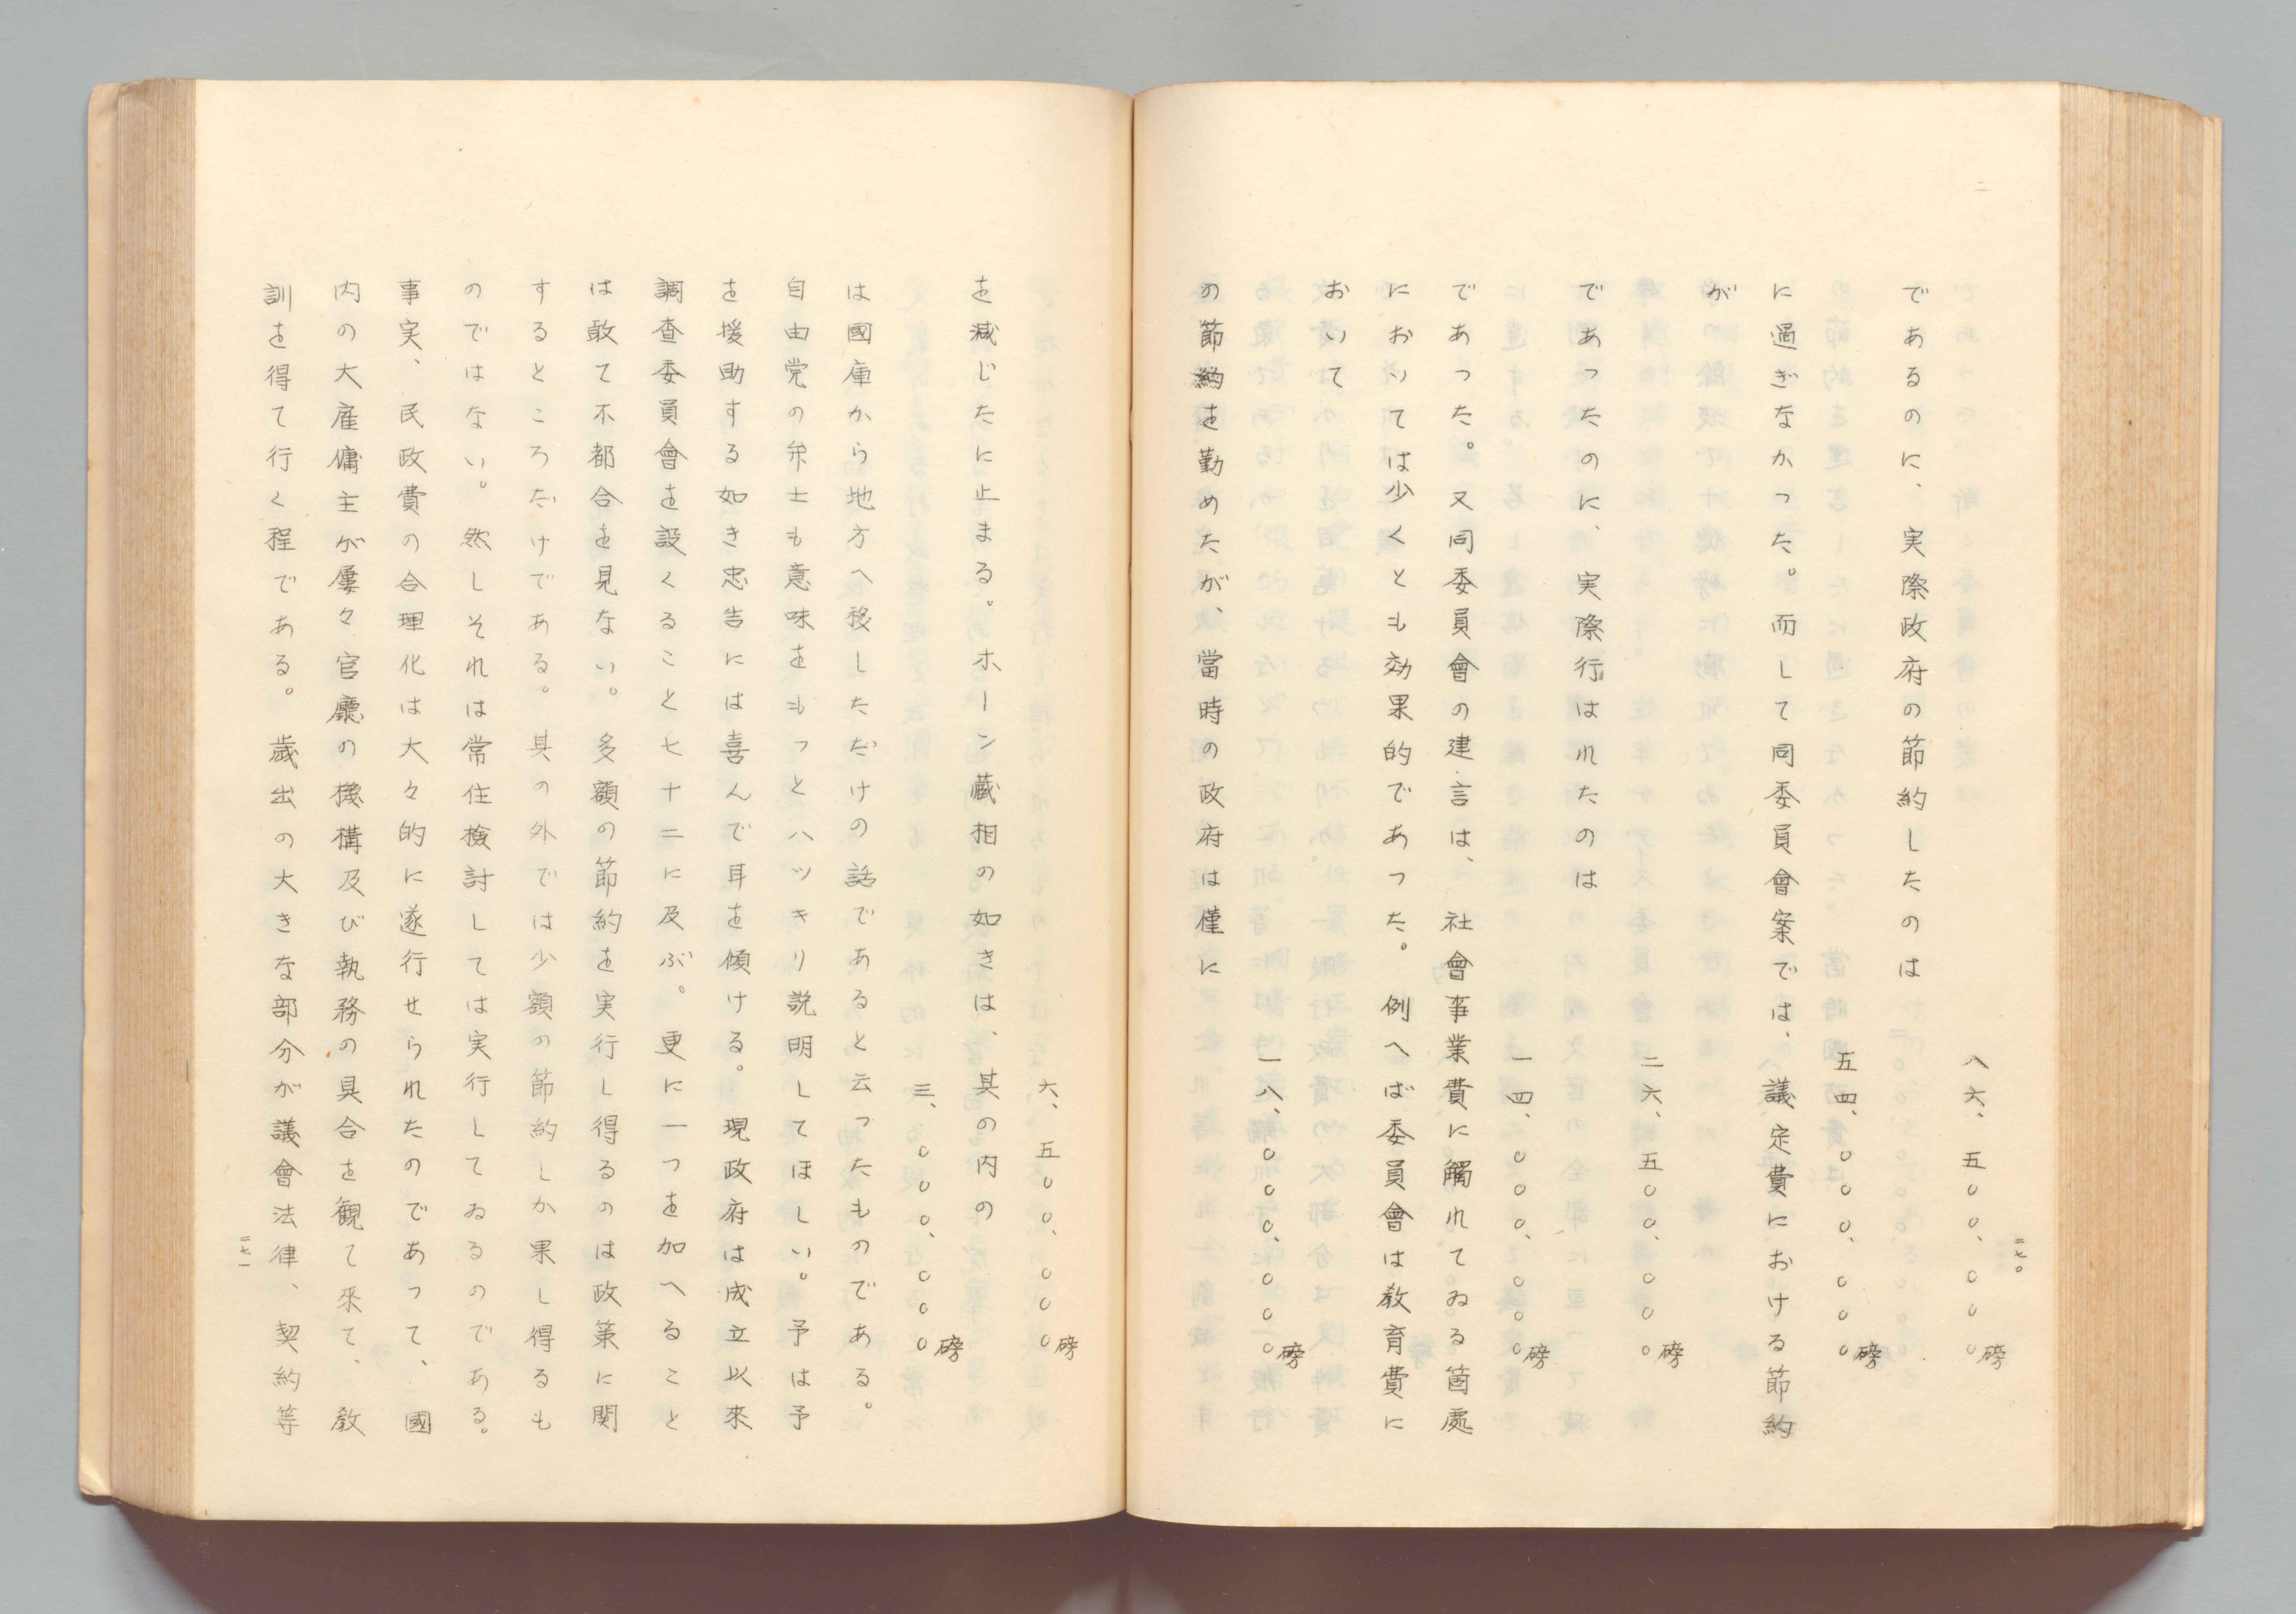 二七〇
八六、五〇〇、〇〇〇磅
であるのに、実際政府の節約したのは
五四、〇〇〇、〇〇〇磅
に過ぎなかった。而して同委員會案では、議定費における節約
が
二六、五〇〇、〇〇〇磅
であったのに、実際行はれたのは
一四、〇〇〇、〇〇〇磅
であった。又同委員會の建言は、社會事業費に觸れてゐる箇處
におゐては少くとも効果的であった。例へば委員會は教育費に
おいて
一八、〇〇〇、〇〇〇磅
の節約を勤めたが、當時の政府は僅に
六、五〇〇、〇〇〇磅
を減じたに止まる。ホーン蔵相の如きは、其の内の
三、〇〇〇、〇〇〇磅
は國庫から地方へ移しただけの話であると云ったものである。
自由党の弁士も意味をもっとハッキリ説明してほしい。予は予
を援助する如き忠告には喜んで耳を傾ける。現政府は成立以來
調査委員會を設くること七十二に及ぶ。更に一つを加へること
は敢て不都合を見ない。多額の節約を実行し得るのは政策に関
するところだけである。其の外では少額の節約しか果し得るも
のではない。然しそれは常住検討しては実行してゐるのである。
事実、民政費の合理化は大々的に遂行せられたのであって、國
内の大雇傭主が屢々官廳の機構及び執務の具合を観て來て、教
訓を得て行く程である。歳出の大きな部分が議會法律、契約等
二七一